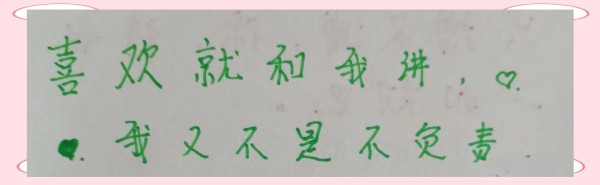 喜欢就和我讲，♡.
♥.我又不是不负责.